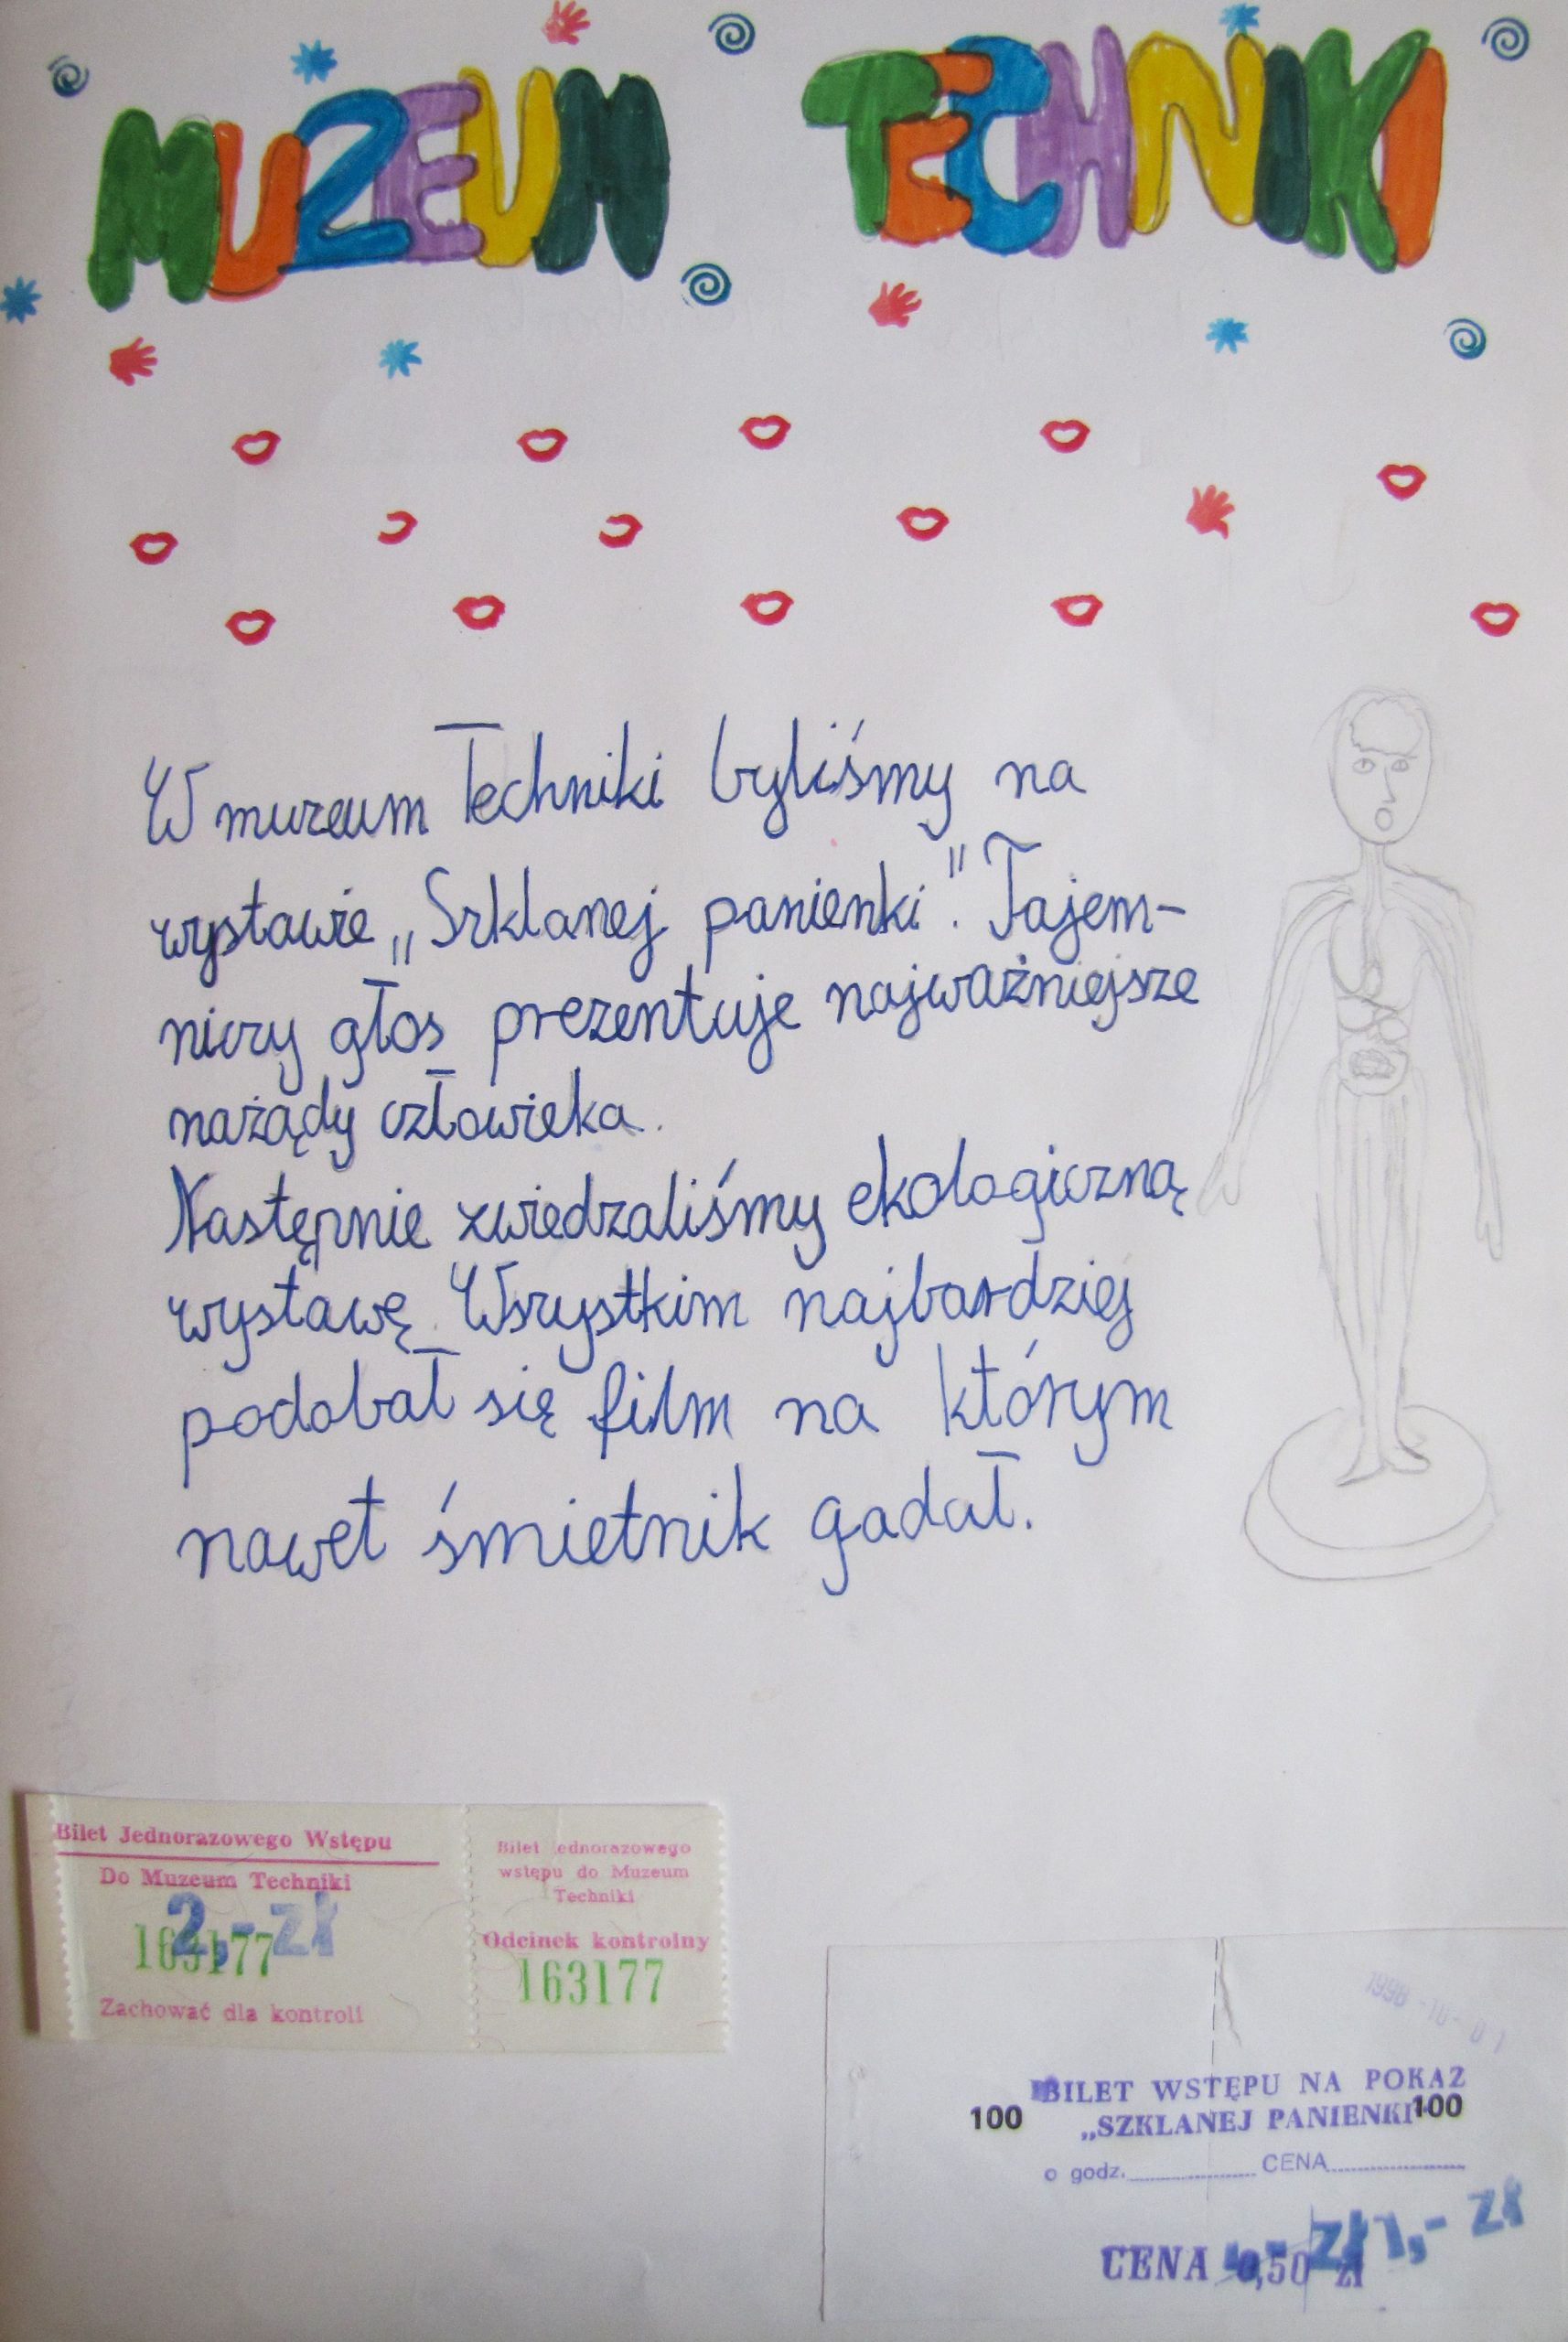 MUZEUM TECHNIKI
W muzeum Techniki byliśmy na
wystawie „Szklanej panienki". Tajem-
niczy głos prezentuje najważniejsze
nażądy człowieka.
Następnie zwiedzaliśmy ekologiczną
wystawę. Wszystkim najbardziej
podobał się film na którym
nawet śmietnik gadał.
Bilet Jednorazowego Wstępu
Do Muzeum Techniki
2,- zł
163177
Zachować dla kontroli
Bilet ednorazowego
wstępu do Muzeum
Techniki
Odcinek kontrolny
163177
1998-10-01
BILET WSTĘPU NA POKAZ
100 „SZKLANEJ PANIENKI" 100
o godz. CENA
CENA 0,50 zł 1,- zł